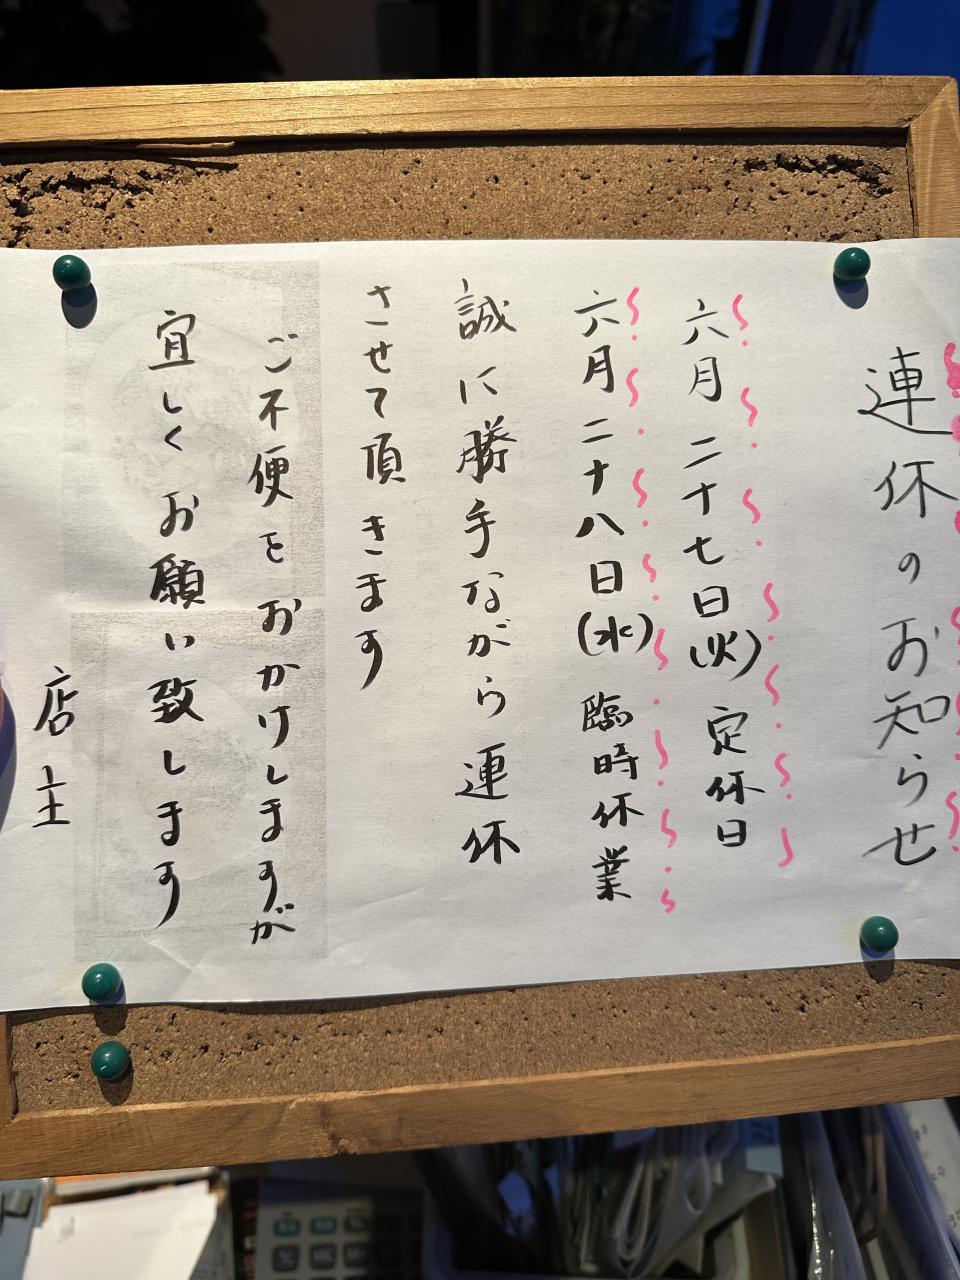 連休のお知らせ
六月二十七日(火)定休日
六月二十八日(水)臨時休業
誠に勝手ながら連休
させて頂きます
ご不便をおかけしますが
宜しくお願い致します
店主